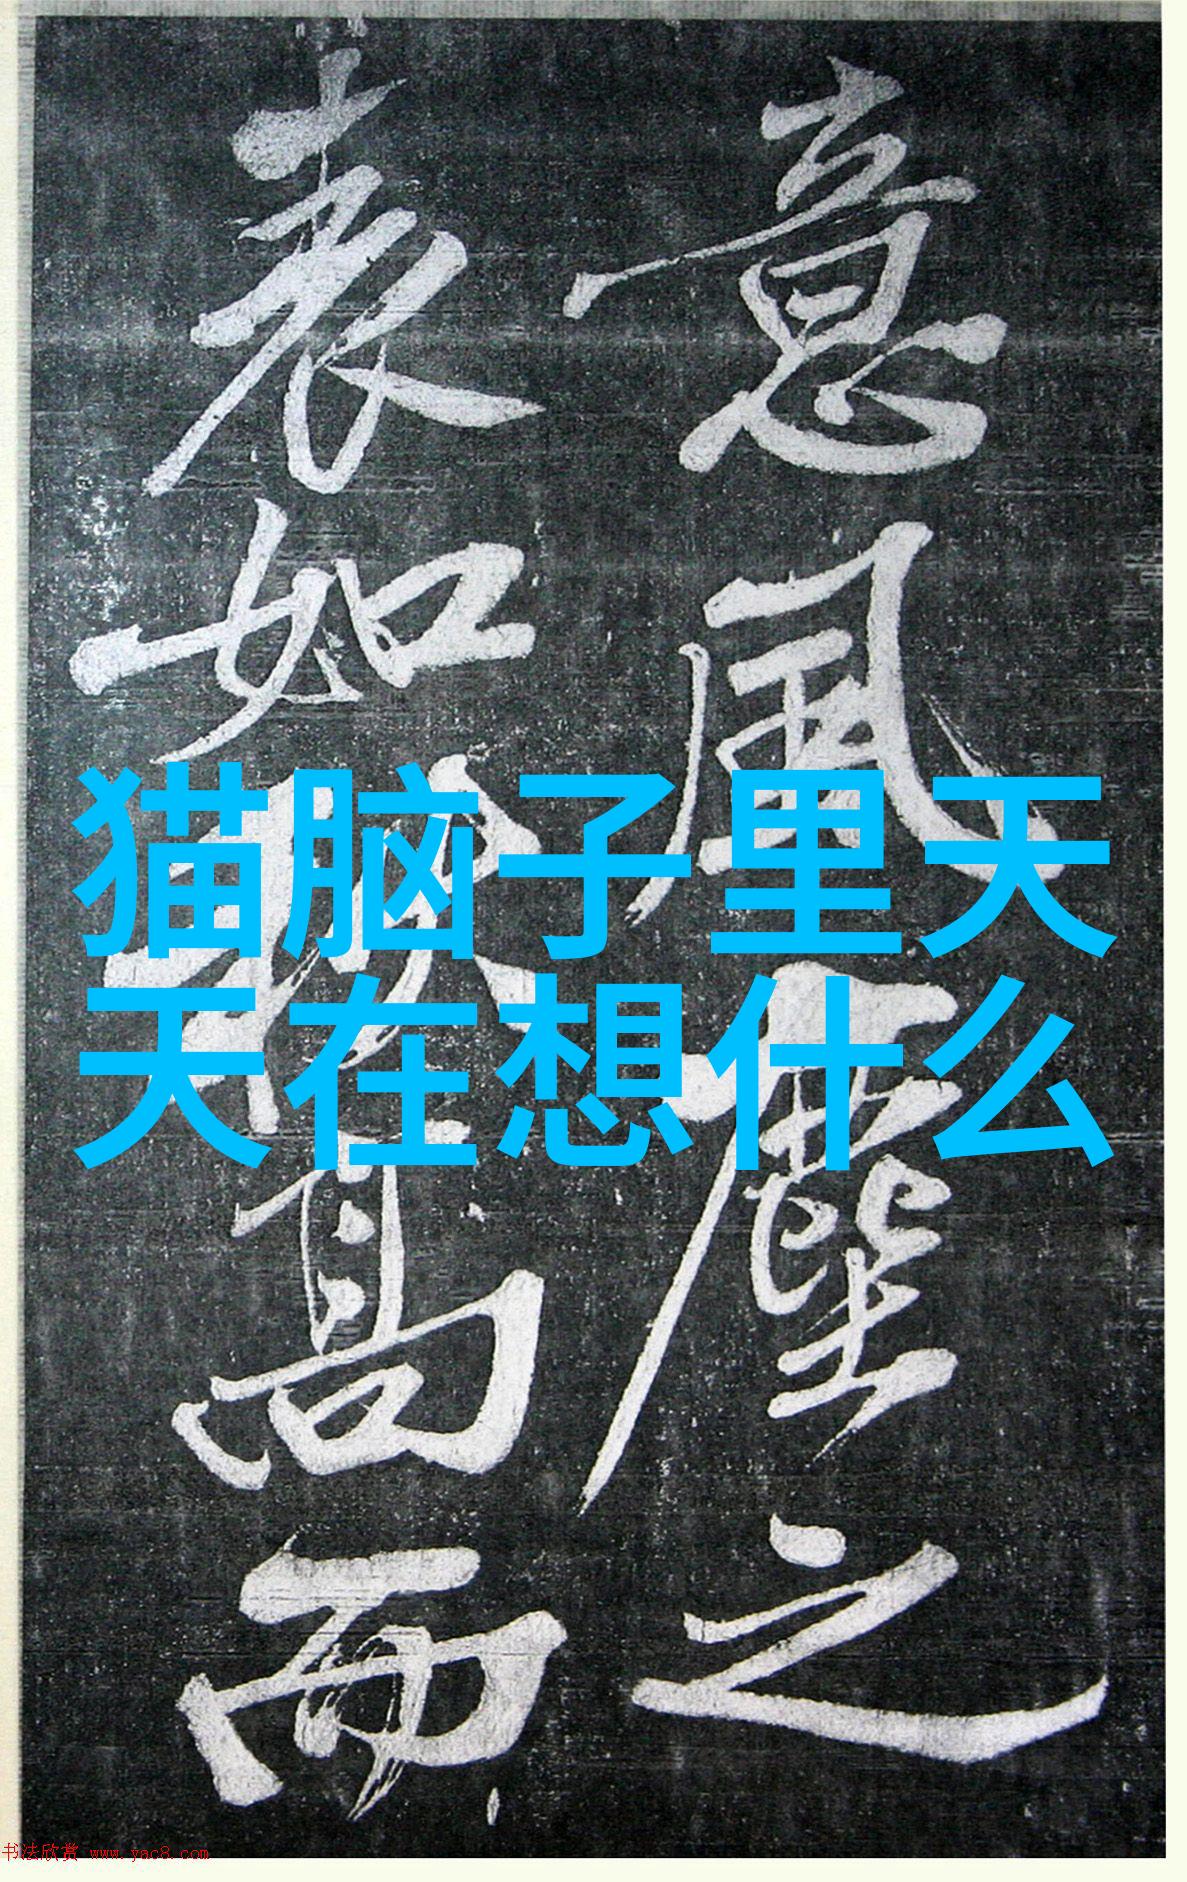 意風塵之
表如秋高而
猫脑子里天
天在想什么
书法欣赏 www.yac8.com